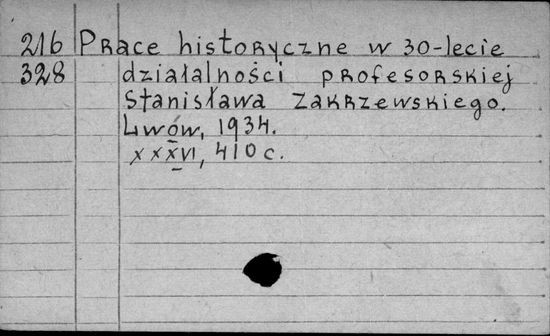 216 Prace historyczne w 30-lecie
328 działalności profesorskiej
Stanisława Zakrzewskiego.
Lwów, 1934.
XXXVI, 410 c.